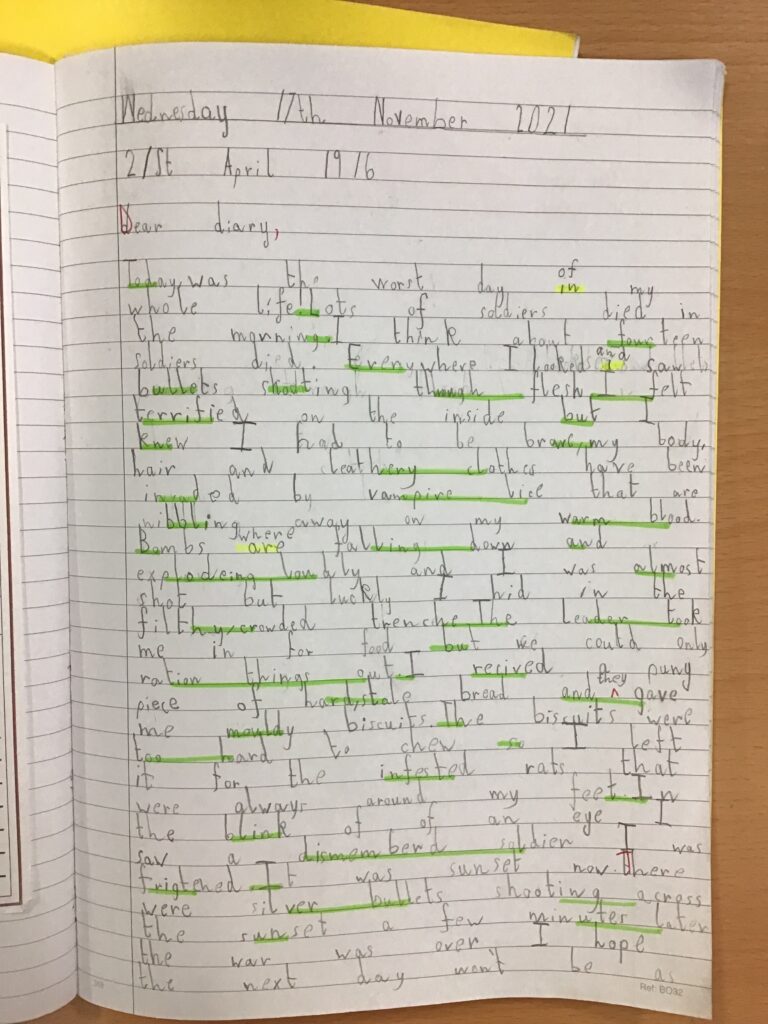 Wednesday 17th November 2021
21st April 1916
Dear diary,
of
Today, was the worst day in my
whole life. Lots of soldiers died in
the mornning. I think about fourteen
and
soldiers died. Ereny where I looked I saw
bullets shooting though flesh I felt
terrified on the inside but I
knew I had to be brave, my body,
hair and leathery clothes have been
invaded by vampire lice that are
nibbling away on my warm blood.
where
Bombs are falling down and
explodeing loudly and I was almost
shot but luckly I hid in the
filthy, crowded trenche. The leader took
me in for food but we could only
ration things out. I recived a puny
they
piece of hard, stale bread and ^ gave
me mouldy biscuits. The biscuits were
too hard to chew so I left
it for the infested rats that
were always around my feet. In
the blink of of an eye I
saw a dismemberd soldier I was
frigtened. It was sunset now. There
were silver bullets shooting acress
the sunset a few minutes later
the war was over. I hope
the next day won't be as
Ref: BO32